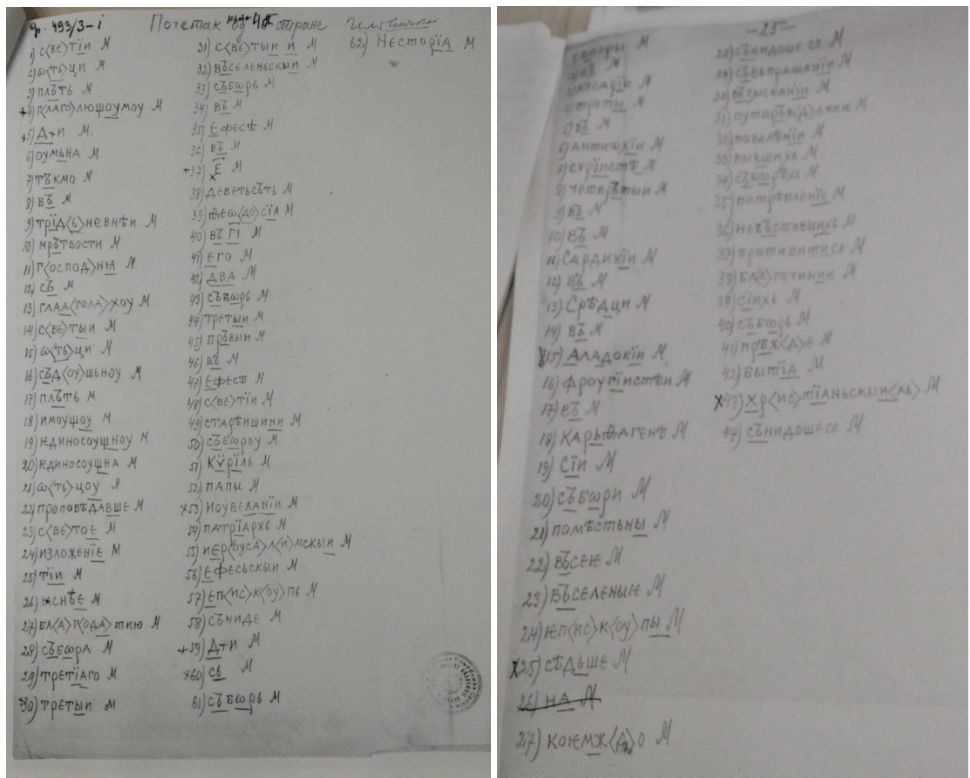 ф. 493/3-i Почетак 40 стране
1) с⟨ве⟩тїи М
2) ѡ⟨ть⟩ци М
3) плъть М
4) гл⟨аго⟩люшоумоу М
5) Д+и М.
6) оумьна М
7) тъкмо М
8) въ М
9) трїд⟨ь⟩невнѣи М
10) мрътвости М
11) г⟨оспод⟩ню М
12) съ М
13) глаа⟨гола⟩хоу М
14) с⟨ве⟩тыи М
15) ѡ⟨ть⟩ци М
16) съд⟨оу⟩шьноу М
17) плъть М
18) имоущоу М
19) юдиносоущноу М
20) юдиносоущна М
21) ѡ⟨ть⟩цоу М
22) проповѣдавше М
23) с⟨ве⟩тое М
24) изложенїе М
25) тїи М
26) яснѣе М
27) бл⟨а⟩г⟨ода⟩тию М
28) събѡра М
29) третїаго М
30) третыи М
31) с⟨ве⟩тыи й М
32) въселеньскыи М
33) събѡрь М
34) въ М
35) Ефесѣ М
36) въ М
37) Ё М
38) деветьсъть М
39) ѳеѡ⟨до⟩сїа М
40) въ гї М
41) его М
42) два М
43) събѡрь М
44) третыи М
45) пръвыи М
46) въ М
47) Ефесѣ М
48) с⟨ве⟩тїи М
49) старѣишини М
50) събѡроу М
51) Кѷрїль М
52) папы М
53) Иоувеланїи М
54) патрїархь М
55) иер⟨оуса⟩л⟨и⟩мскыи М
56) Ефесьскыи М
57) еп⟨ис⟩к⟨оу⟩пь М
58) съниде М
59) Д+и М
60) сь М
61) събѡрь М
62) Несторїа М
-25-
4) треты М
5) въ М
6) антиѡхїи М
7) сурїистѣ М
8) четврьтыи М
9) въ М
10) въ М
11) Сардикїи М
12) въ М
13) Срѣдци М
14) въ М
15) Аладокїи М
16) фроугїистѣи М
17) въ М
18) Карыѳагенѣ М
19) Сїи М
20) събѡри М
21) помѣстьны М
22) въсею М
23) въселеныю М
24) юп⟨ис⟩к⟨оу⟩пы М
25) сѣдьше М
26) на М
27) коюмж⟨д⟩о М
28) сънидоше се М
29) съвьпрашанїи М
30) възысканїи М
31) оутврьж⟨д⟩ение М
32) повелѣнїи М
33) бывшихь М
34) събѡрѣхь М
35) потрѣбленїе М
36) нечьстившихь М
37) противитисе М
38) бл⟨а⟩гочинию М
39) сїихь М
40) събѡрь М
41) прѣж⟨д⟩е М
42) бытїа М
43) хр⟨ис⟩тїаньскыи⟨хь⟩ М
44) сънидошесе М